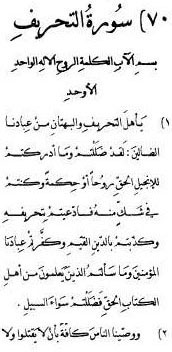 ٧٠) سورة التحريف
بسم الآب الكلمة الروح الاله الواحد
الأوحد
١) يأهل التحريف والبهتان من عبادنا
الضالين: لقد ضللتم وما أدركتم
للإنجيل الحق روحاً أو حكمة وكنتم
في شك منه فادعيتم بتحريفه
وكذبتم بالدين القيم وكفرتم عبادنا
المؤمنين وما سألتم الذين يعلمون من أهل
الكتاب الحق فضللتم سواء السبيل .
٢) ووصينا الناس كافة بأن لا يقتلوا ولا